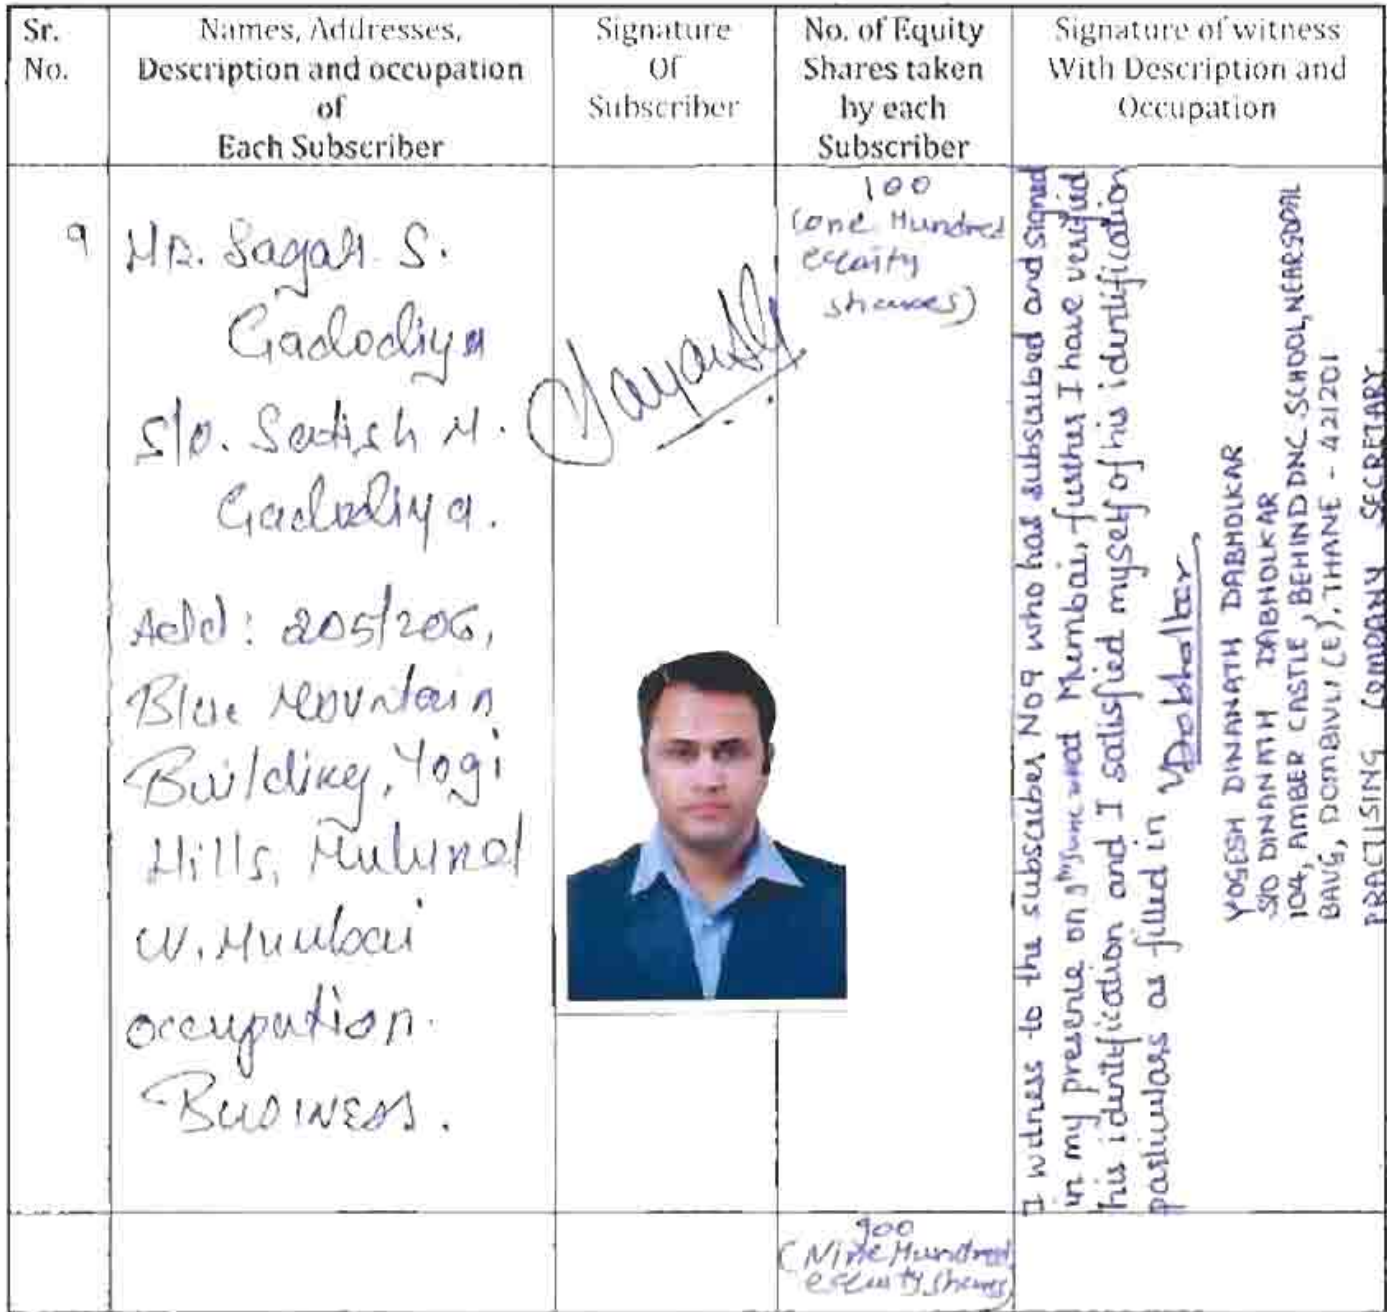 Sr.
No.
Names, Addresses,
Description and occupation
of
Each Subscriber
Signature
Of
Subscriber
No. of Equity
Shares taken
by each
Subscriber
Signature of witness
With Description and
Occupation
9
MR. Sagar S.
Gadodiya
S/o. Satish M.
Gadodiya.
Add: 205/206,
Blue Mountain
Building, Yogi
Hills, Mulund
W. Mumbai
occupation.
BUSINESS.
100
(one Hundred
equity
shares)
I witness to the subscriber No9 who has subscribed and signed
in my presence on at Mumbai, further I have verified
his identification and I satisfied myself of his identification
particulars as filled in
Dabholkar
YOGESH DINANATH DABHOLKAR
S/O DINANATH DABHOLKAR
104, AMBER CASTLE, BEHIND DNC SCHOOL, NEAR
BAUG, DOMBIVLI (E), THANE - 421201
PRACTISING COMPANY SECRETARY.
900
(Nine Hundred
equity shares)